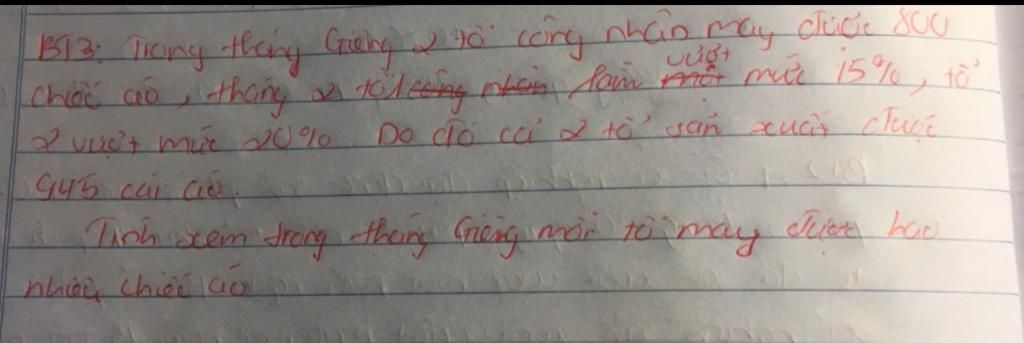 BT3: Trong tháng Giêng 2 tổ công nhân may được 800
chiếc áo, tháng 2 tổ 1 công nhân làm vượt một mức 15%, tổ
2 vượt mức 20%. Do đó cả 2 tổ sản xuất được
945 cái áo.
Tính xem trong tháng Giêng mỗi tổ may được bao
nhiêu chiếc áo